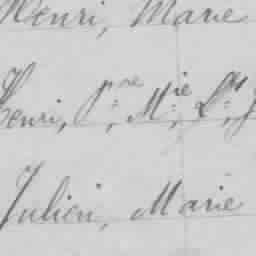 Henri, Marie
Henri, Pre, Mie, Ls, J
Julien, Marie